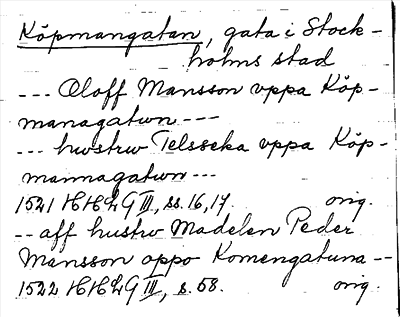 Köpmangatan, gata i Stock-
holms stad
--- Oloff Mansson vppa Köp-
managatwn ---
--- hwstrw Telsseka vppa Köp-
mannagatwn ---
1521 HHLG III, ss. 16, 17. orig.
-- aff hustrv Madelen Peder
Mansson oppo Komengatuna --
1522 HHLG III, s. 58. orig.